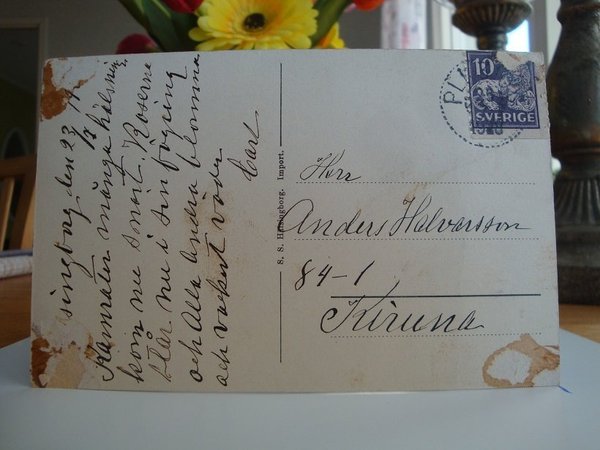 singborg den 23/
Kamraten många hälsnin
kom nu snart. Roserna
står nu i sin fägring
och Alla Andra blomma
och vackert väder
Carl
S. S. Helsingborg. Import.
PL
10
SVERIGE
Herr
Anders Halvarsson
84-1
Kiruna